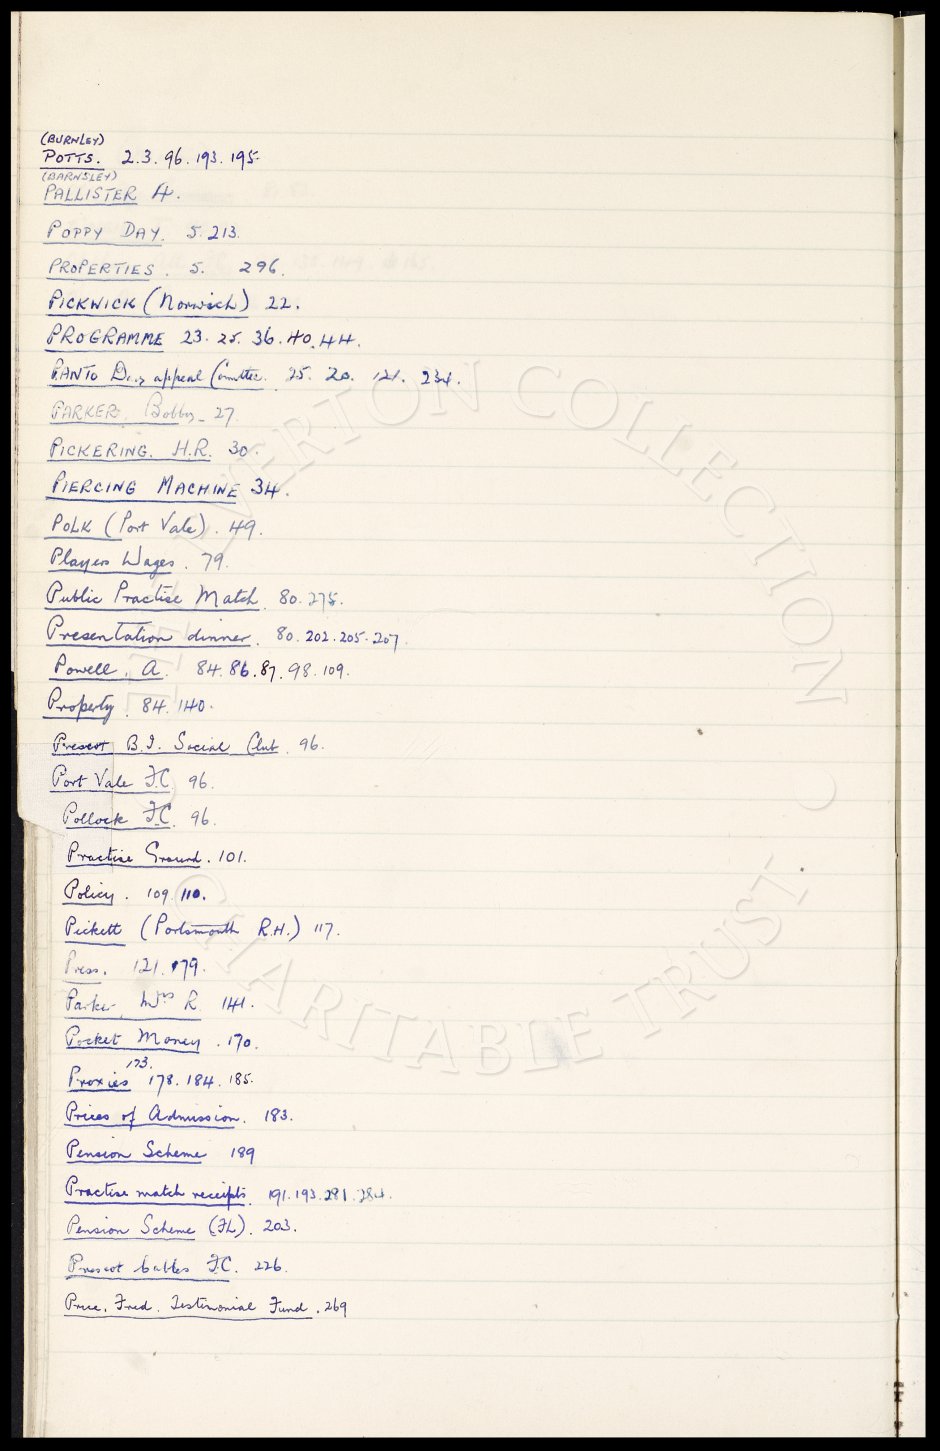 (BURNLEY)
POTTS. 2.3. 96. 193. 195.
(BARNSLEY)
PALLISTER 4.
POPPY DAY. 5. 213.
PROPERTIES. 5. 296.
PICKWICK (Norwich) 22.
PROGRAMME 23. 25. 36. 40. 44.
PANTO Day appeal Committee. 25. 20. 121. 234.
PARKER, Bobby 27
PICKERING. H.R. 30.
PIERCING MACHINE 34.
POLK (Port Vale). 49.
Players Wages. 79.
Public Practise Match. 80. 275.
Presentation dinner. 80. 202. 205. 207.
Powell. A. 84. 86. 87. 98. 109.
Property. 84. 140.
Prescot B.I. Social Club. 96.
Port Vale F.C. 96.
Pollock F.C. 96.
Practise Ground. 101.
Policy. 109. 110.
Pickett (Portsmouth R.H.) 117.
Press. 121. 179.
Parker, Mrs R. 141.
Pocket Money. 170.
173.
Proxies 178. 184. 185.
Prices of Admission. 183.
Pension Scheme 189
Practise match receipts. 191. 193. 281. 284.
Pension Scheme (FL). 203.
Prescot Cables F.C. 226.
Price. Fred. Testimonial Fund. 269
THE EVERTON COLLECTION
CHARITABLE TRUST